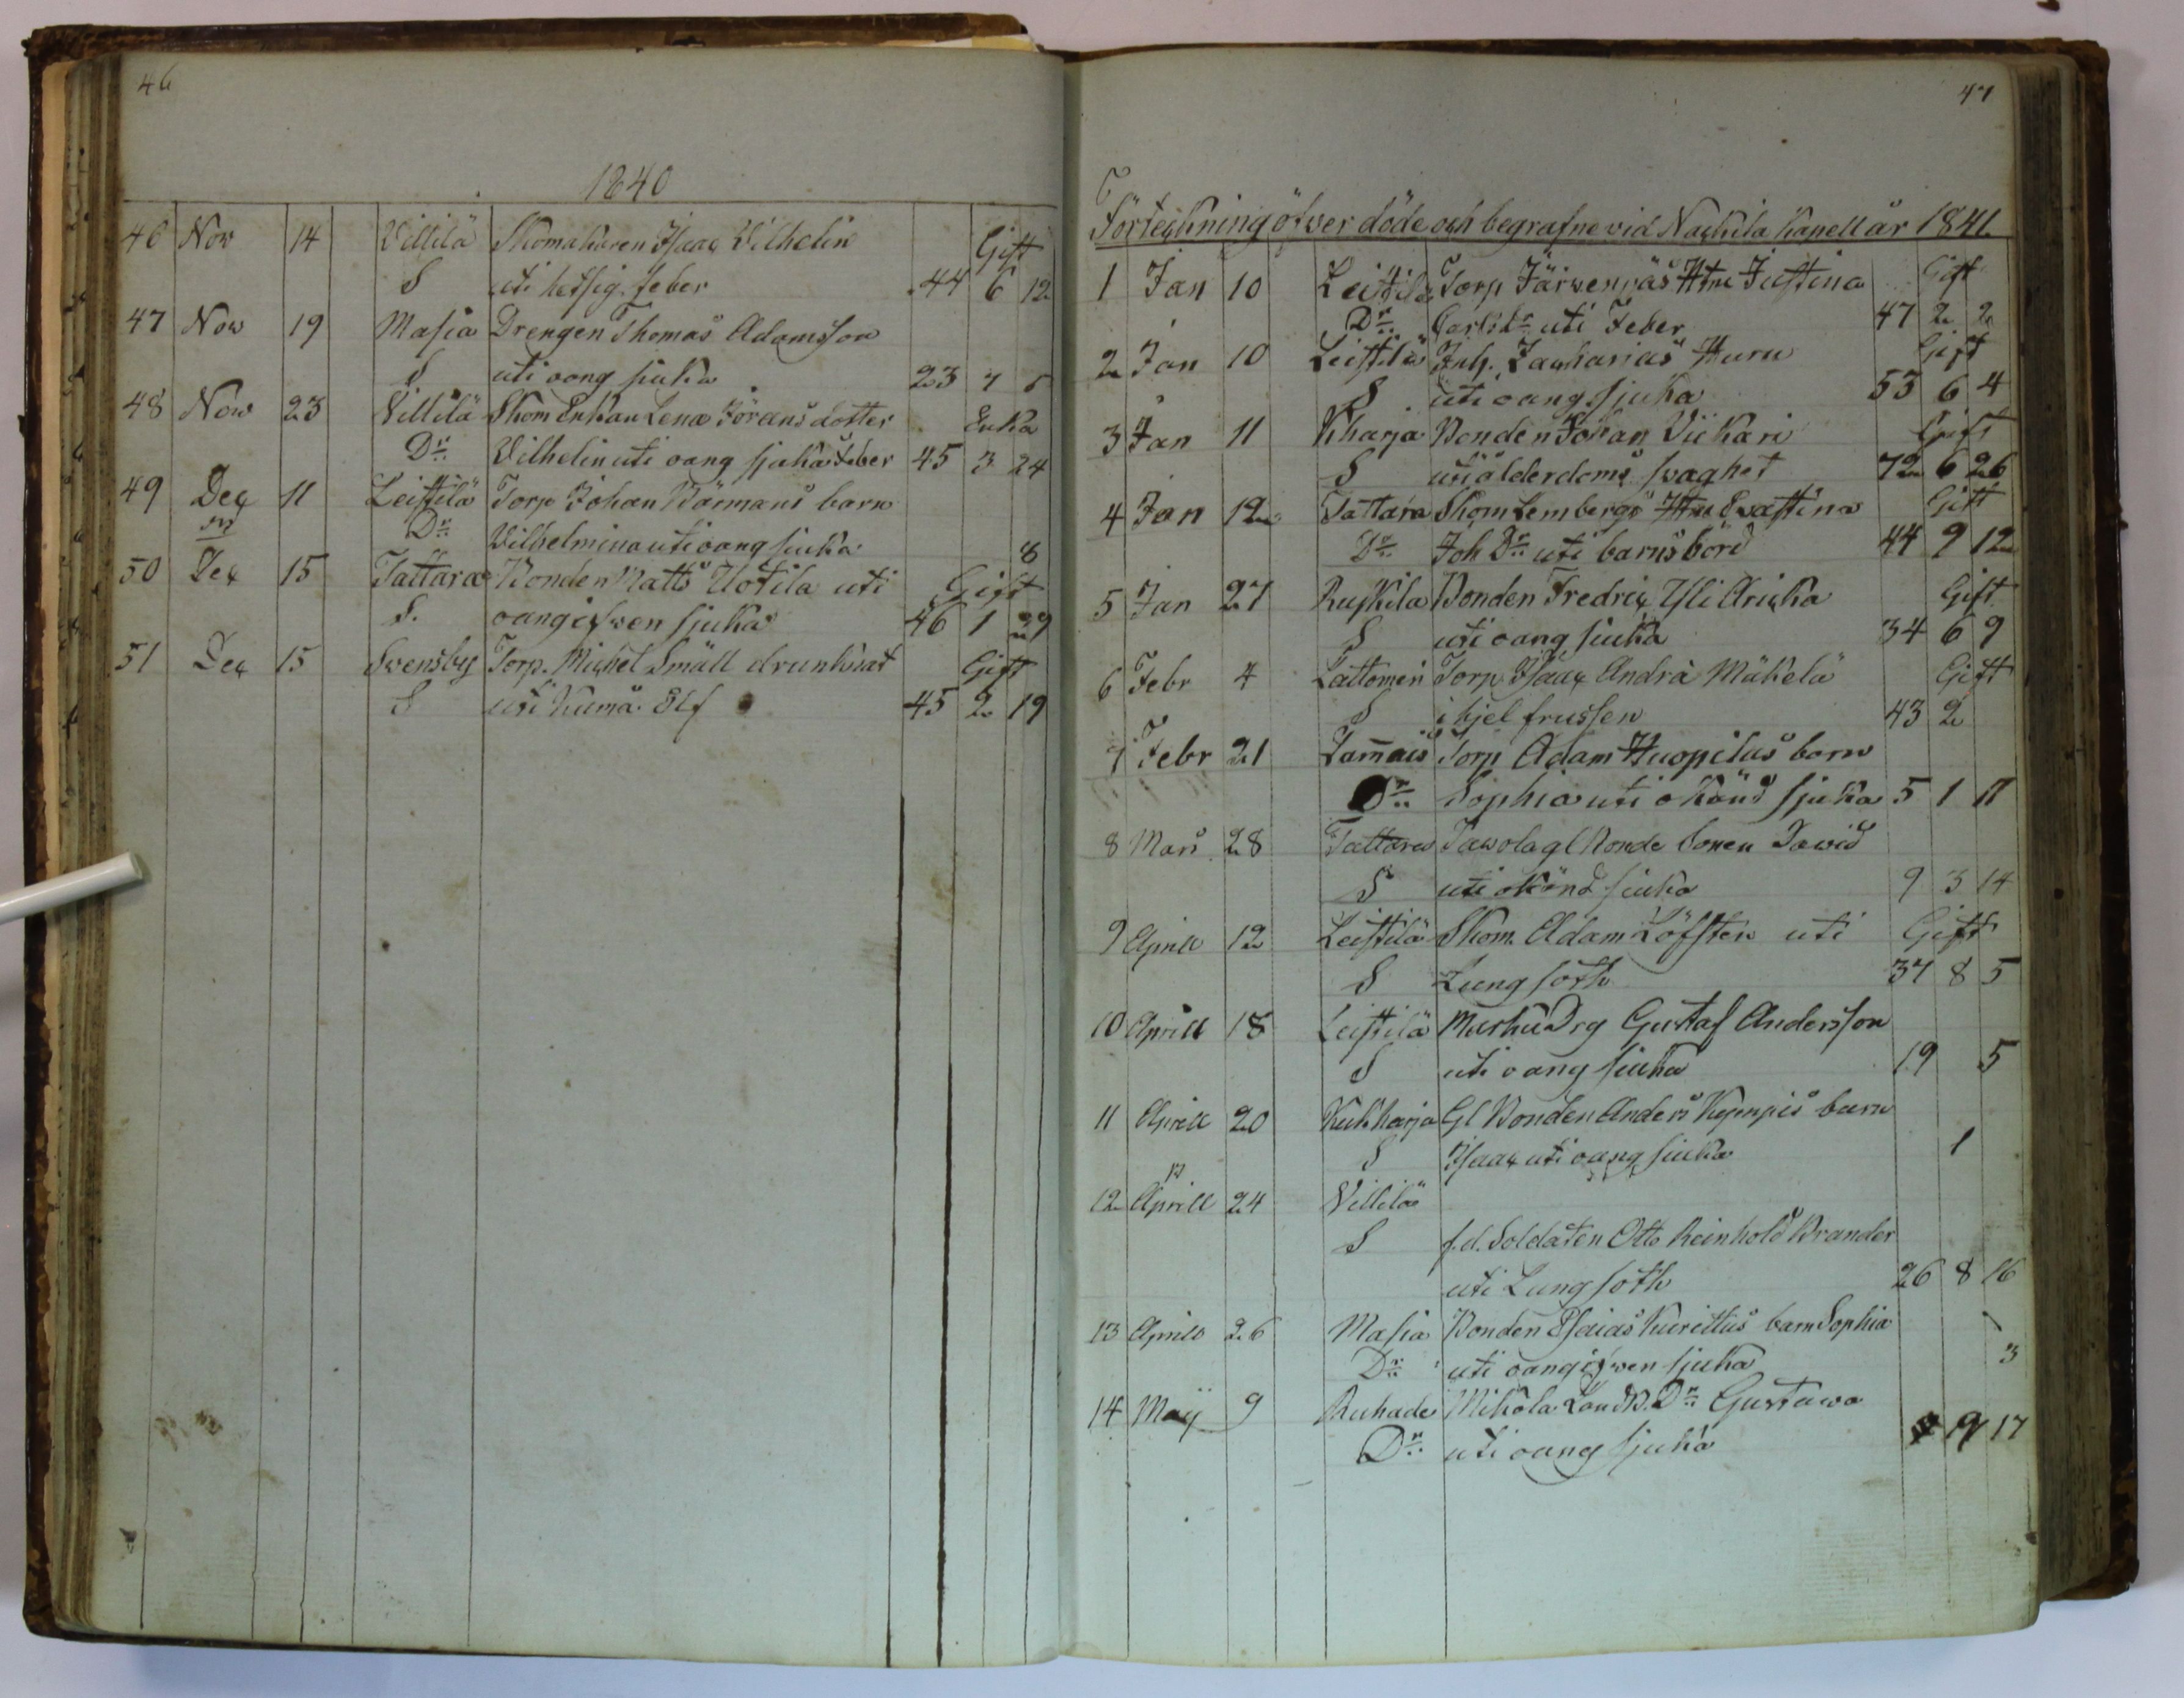 46
1840
46 Nov 14 Villilä Skomakaren Isaac Vilhelin Gift
S uti hetsig feber 44 6 12
47 Nov 19 Masia Drengen Thomas Adamsson
S uti oang sjuka 23 7 5
48 Nov 23 Villilä Skom Enkan Lena Jörans dotter Enka
Dr Vilhelin uti oang sjuka feber 45 3 24
49 Dec 11 Leistilä Torp Johan Bärmans barn
Dr Vilhelmina uti oang sjuka 8
50 Dec 15 Tattara Bonden Matts Uotila uti Gift
S. oangifwen sjuka 46 1 29
51 Dec 15 Svensby Torp. Michel Smäll drunknat Gift
S uti Kumå Elf 45 2 19
47
Förteckning öfwer döde och begrafne vid Nackila Kapell år 1841.
1 Jan 10 Leistilä Torp Järwenpäs Hru Justina Gift
Dr Carls Dr uti Feber 47 2 2
2 Jan 10 Leistilä Inh. Zacharias Huru Gift
S uti oang sjuka 53 6 4
3 Jan 11 Kharja Bonden Johan Vickari Gift
S uti ålderdoms svaghet 72 6 26
4 Jan 12 Tattara Skom Lembergs Hru Evastina Gift
Dr Joh Dr uti barnsbörd 44 9 12
5 Jan 27 Ruskila Bonden Fredric Yli Aricka Gift
S uti oang sjuka 34 6 9
6 Febr 4 Lattomeri Torp Isaac Andra Mäkelä Gift
S ihjel frussen 43 2
7 Febr 21 Lammais Torp Adam Huopilas barn
Dr Sophia uti okänd sjuka 5 1 11
8 Mars 28 Tattara Tawola gl Bonde Sonen Dawid
S uti okänd sjuka 9 3 14
9 Aprill 12 Leistilä Skom. Adam Löfsten uti Gift
S Lungsoth 37 8 5
10 Aprill 18 Leistilä Marku Drg Gustaf Andersson
S uti oang sjuka 19 5
11 Aprill 20 Kukharja Gl Bonden Anders Kepenpis barn
S Isaac uti oang sjuka 1
12 Aprill 24 Villilä
S f.d. Soldaten Otto Reinhold Brander
uti Lungsoth 26 8 16
13 Aprill 26 Masia Bonden Esaias Kurittus barn Sophia
Dr uti oangifwen sjuka 3
14 Maij 9 Ruhade Mikola Land B. Dr Gustawa
Dr uti oang sjuka 9 17